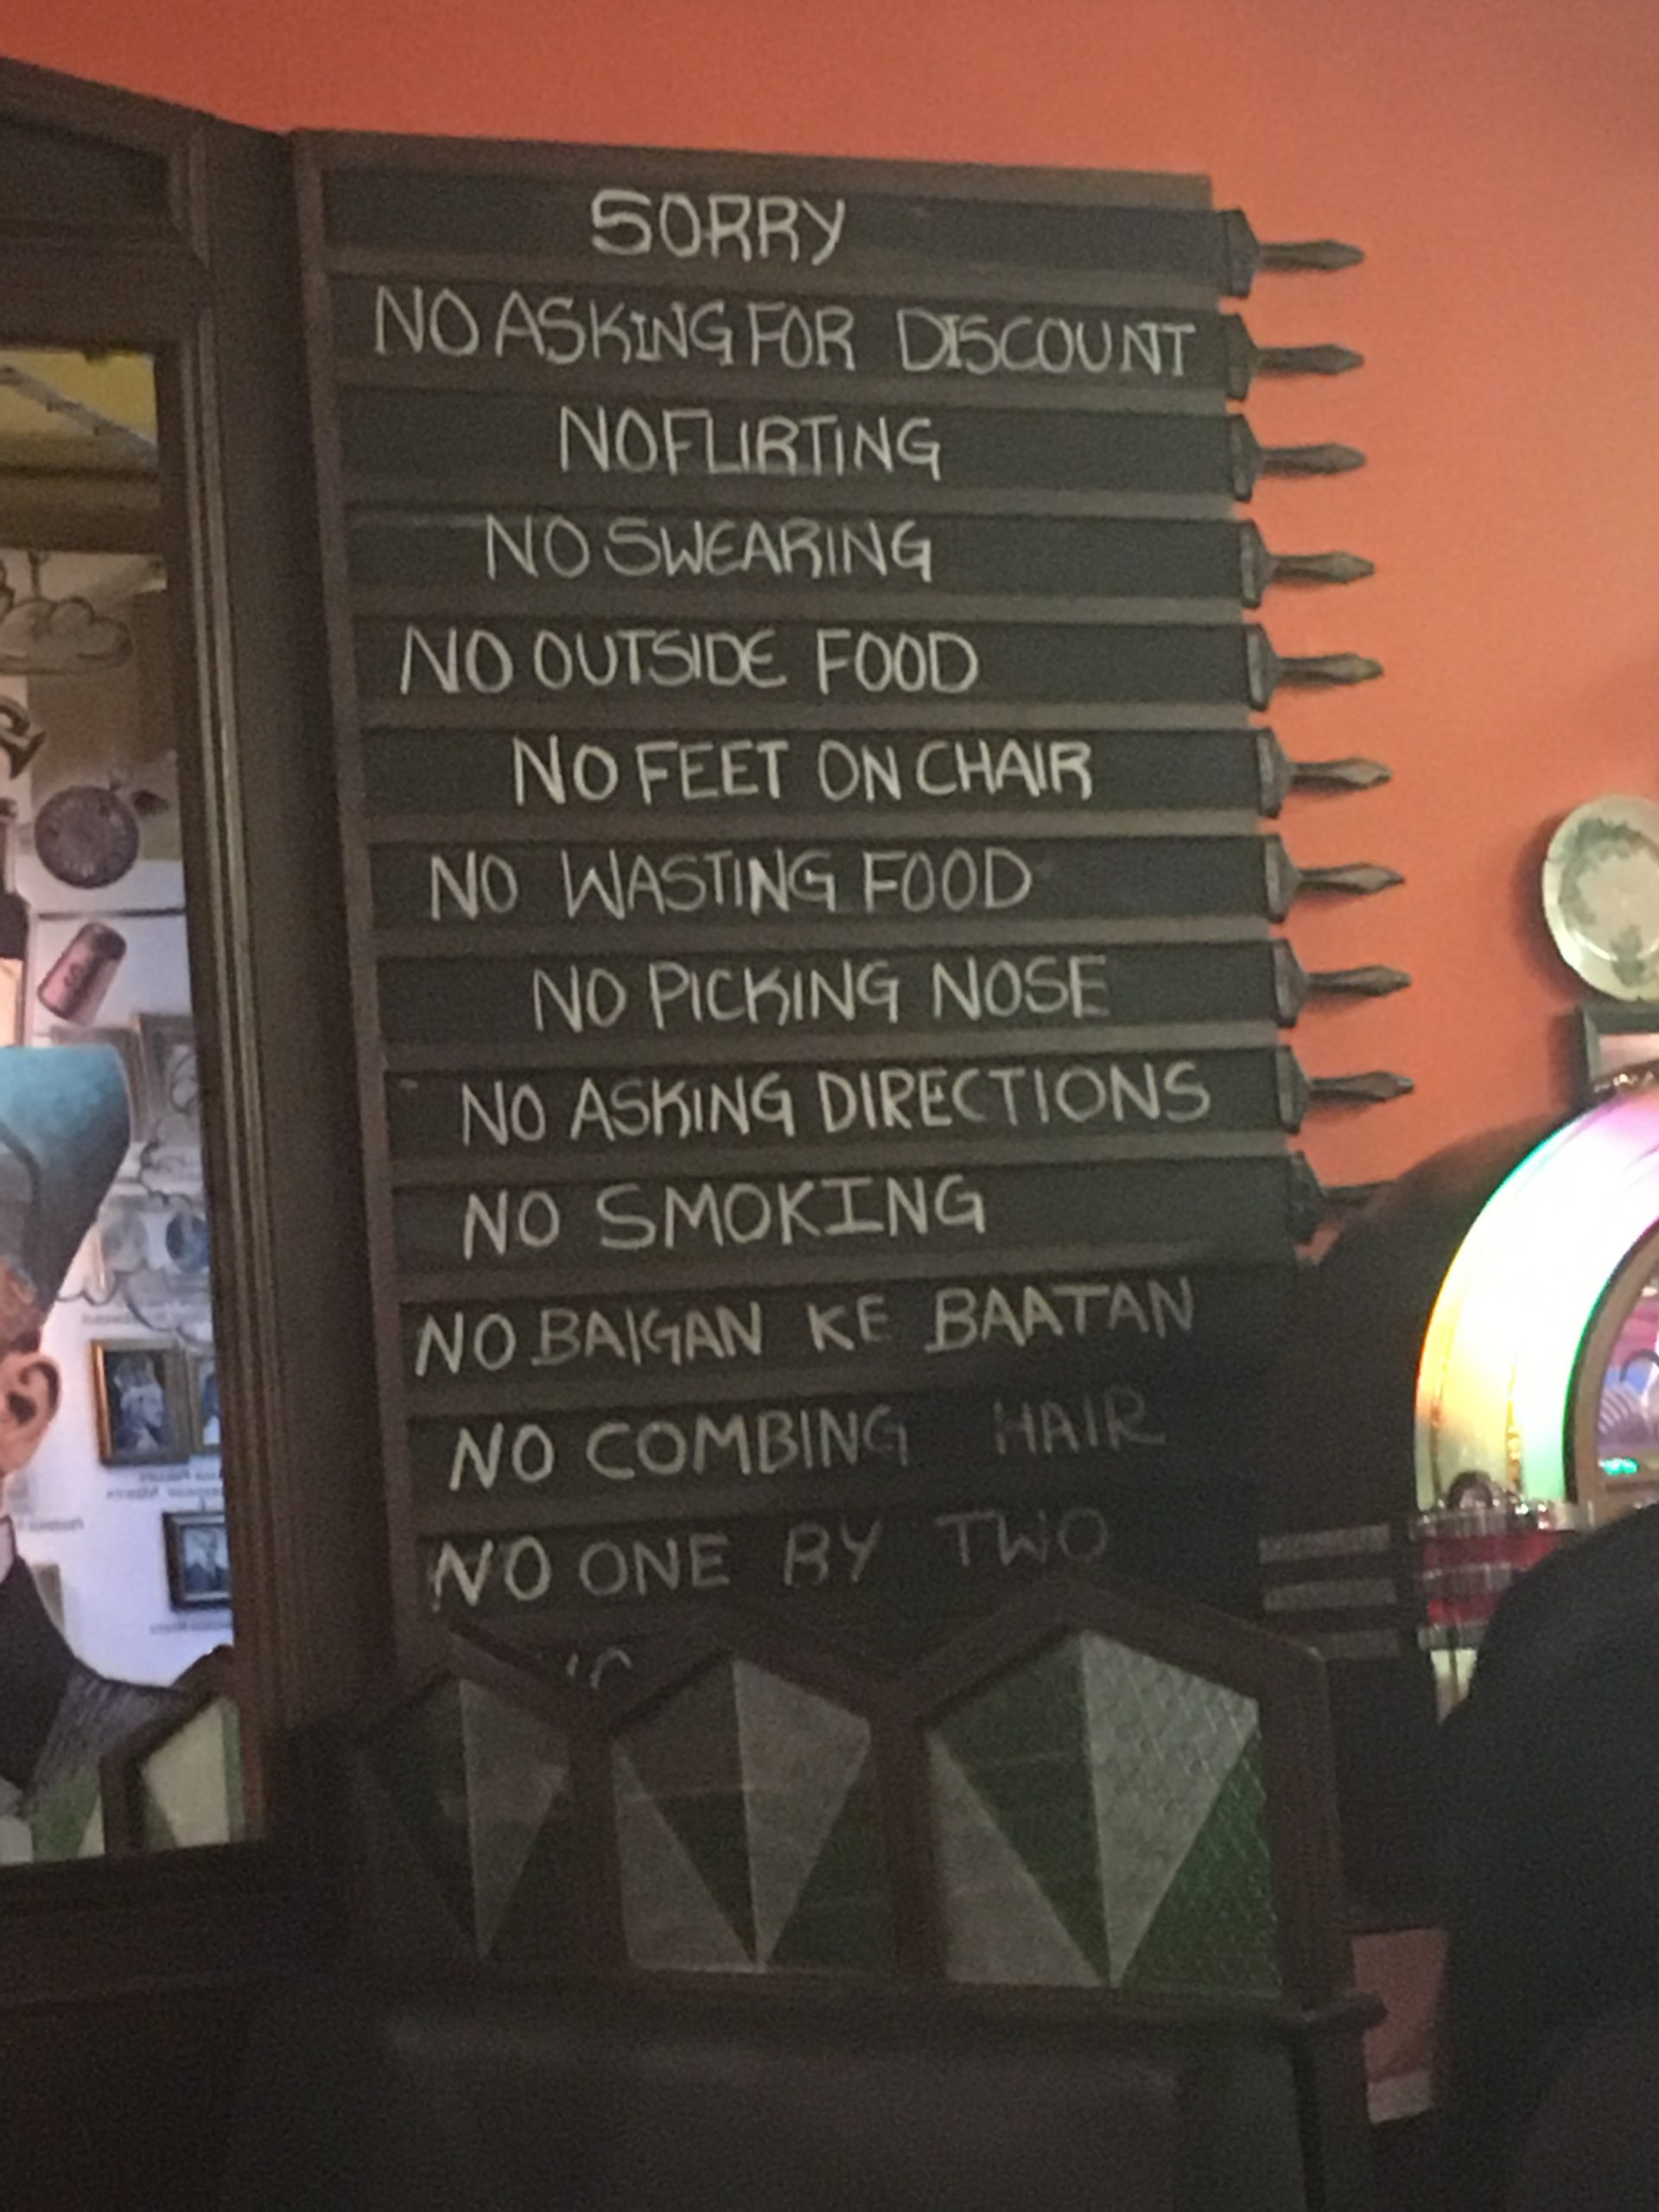 SORRY
NO ASKING FOR DISCOUNT
NO FLIRTING
NO SWEARING
NO OUTSIDE FOOD
NO FEET ON CHAIR
NO WASTING FOOD
NO PICKING NOSE
NO ASKING DIRECTIONS
NO SMOKING
NO BAIGAN KE BAATAN
NO COMBING HAIR
NO ONE BY TWO